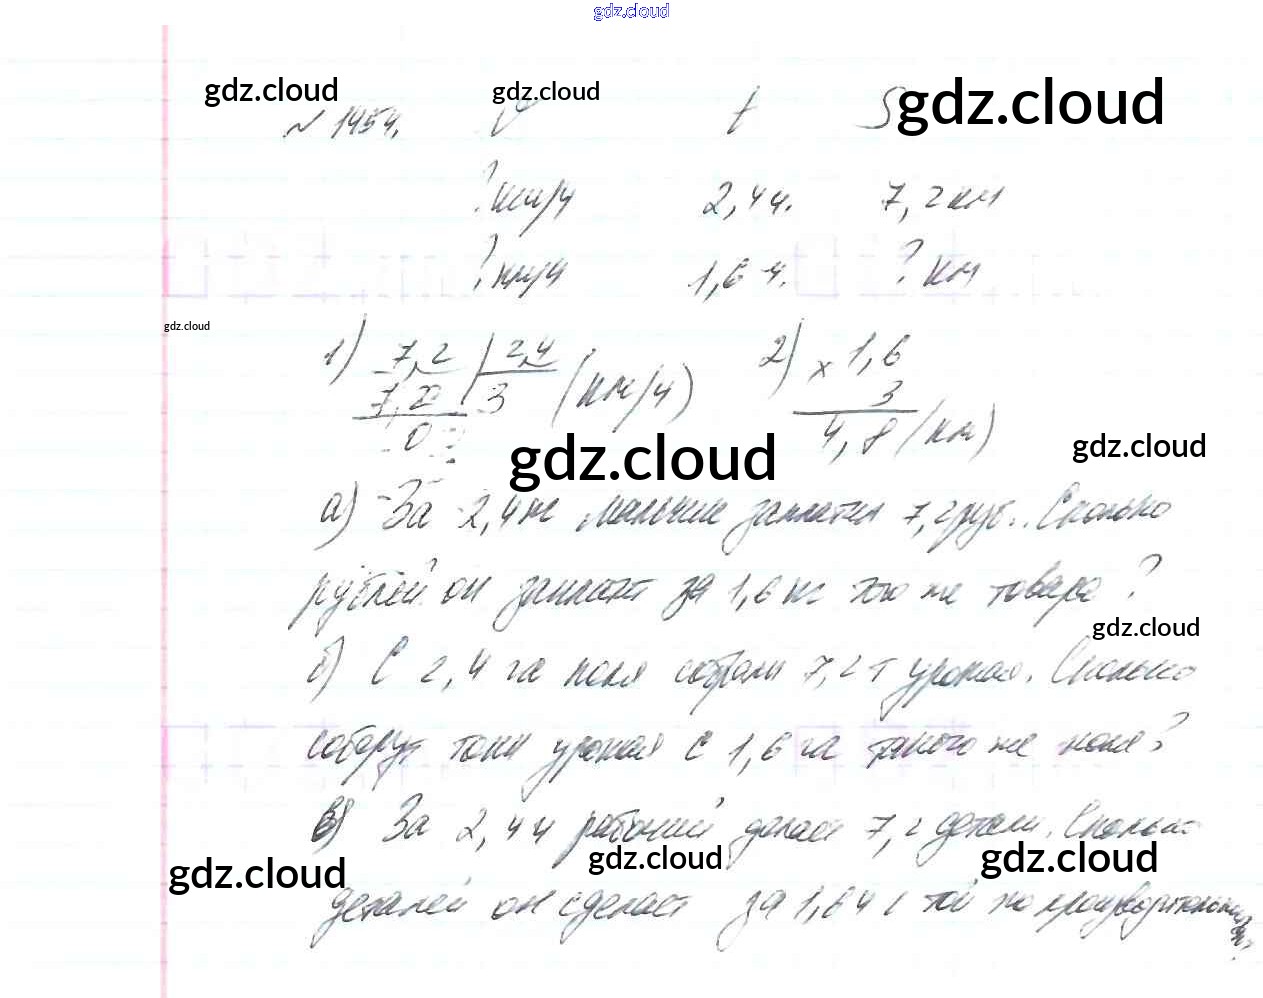 gdz.cloud
gdz.cloud gdz.cloud gdz.cloud
№ 1454. V t S
? км/ч 2,4 ч. 7,2 км
? км/ч 1,6 ч. ? км
gdz.cloud
1) 7,2 | 2,4 2) × 1,6
7,2 3 (км/ч) 3
0 4,8 (км)
gdz.cloud gdz.cloud
а) За 2,4 кг мальчик заплатил 7,2 руб. Сколько
рублей он заплатит за 1,6 кг того же товара?
gdz.cloud
б) С 2,4 га поля собрали 7,2 т урожая. Сколько
соберут тонн урожая с 1,6 га такого же поля?
в) За 2,4 ч рабочий делает 7,2 детали. Сколько
gdz.cloud gdz.cloud gdz.cloud
деталей он сделает за 1,6 ч с той же